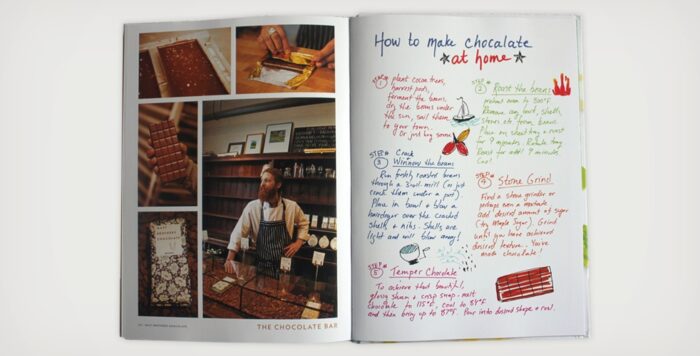 MAST BROTHERS CHOCOLATE
THE CHOCOLATE BAR
MAST
BROTHERS
CHOCOLATE
How to make chocolate
at home
STEP
1
plant cocoa trees,
harvest pods,
ferment the beans,
dry the beans under
the sun, sail them
to your town..
Or just buy some
STEP
2
Roast the beans
preheat oven to 300°F
Remove any dirt, shells,
stones etc from beans.
Place on sheet tray + roast
for 9 minutes. Rotate tray
Roast for addtl 9 minutes
Cool.
STEP
3
Crack
Winnow the beans
Run freshly roasted beans
through a mill (or just
crack them under a pot).
Place in bowl + blow a
hairdryer over the cracked
shells + nibs. Shells are
light and will blow away!
STEP
4
Stone Grind
Find a stone grinder or
perhaps even a
add desired amount of sugar
(try Maple Sugar). Grind
until you have achieved
desired texture.. You've
made chocolate!
STEP
5
Temper Chocolate
To achieve that beautiful,
glossy sheen + crisp snap. melt
chocolate to 115°F, cool to 84°F
and then bring up to 87°F. Pour into desired shape + cool.